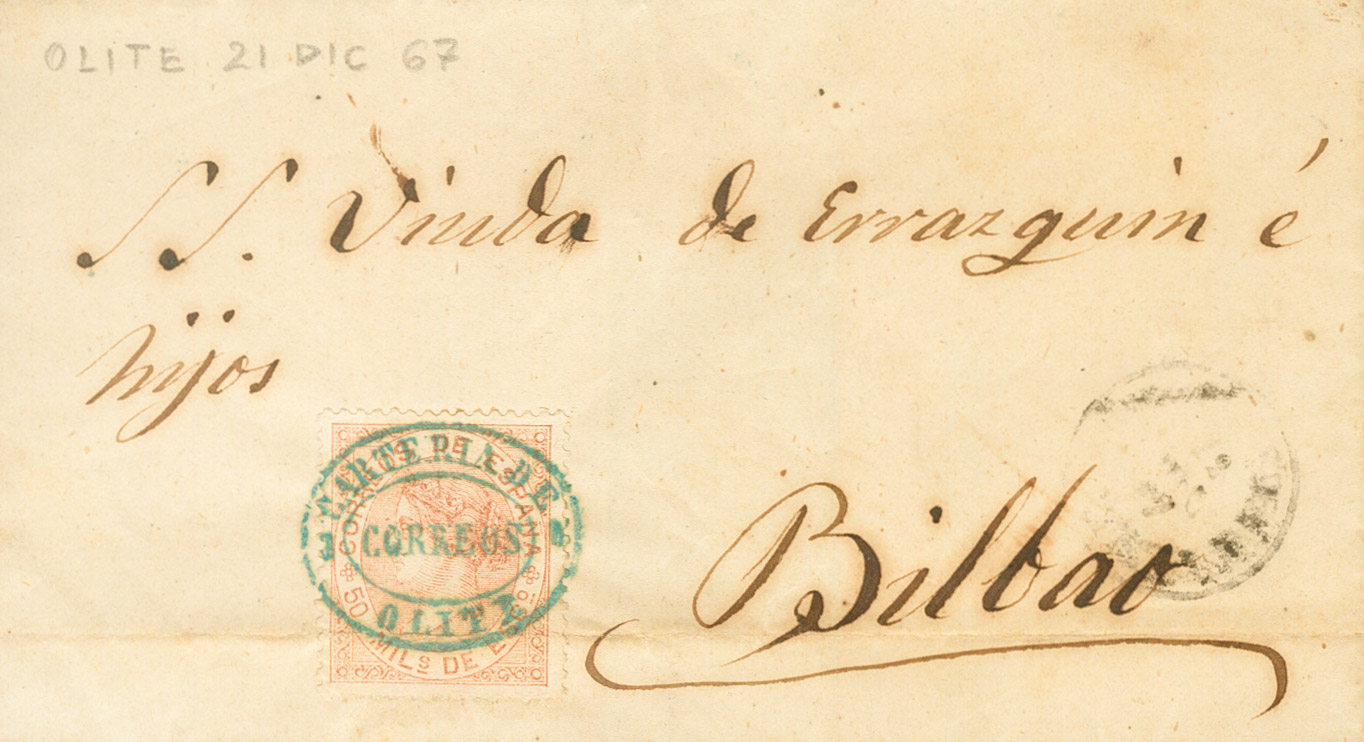 OLITE 21 DIC 67
S S. Viuda de Errazquin é
hijos
CARTERIA DE
CORREOS
OLITE
CORREOS DE ESPAÑA
50 MILs DE ESCo
Bilbao